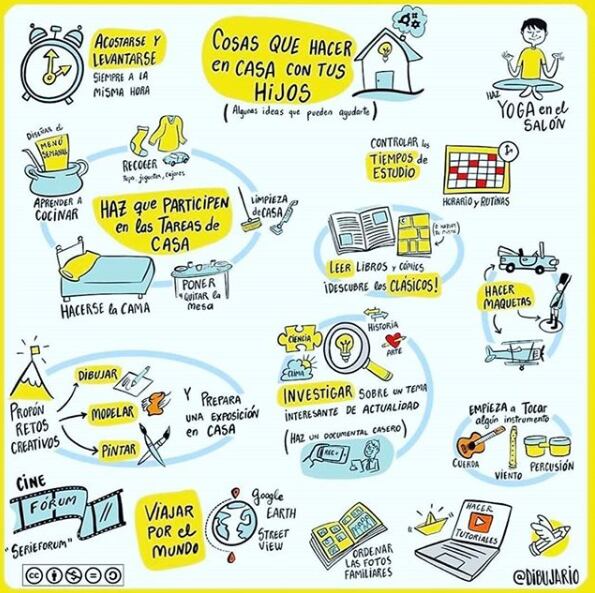 ACOSTARSE Y
LEVANTARSE
SIEMPRE A LA
MISMA HORA
COSAS QUE HACER
en CASA CON TUS
HIJOS
(Algunas ideas que pueden ayudarte)
HAZ
YOGA en el
SALÓN
Diseñar el
MENÚ
SEMANAL
APRENDER A
COCINAR
RECOGER
Ropa, juguetes, cajones
HAZ QUE PARTICIPEN
en las TAREAS de
CASA
LIMPIEZA
de CASA
HACERSE la CAMA
PONER
y QUITAR la
mesa
CONTROLAR los
TIEMPOS de
ESTUDIO
HORARIO y RUTINAS
LEER LIBROS y CÓMICS
¡DESCUBRE los CLÁSICOS!
HACER
MAQUETAS
PROPÓN
RETOS
CREATIVOS
DIBUJAR
MODELAR
PINTAR
Y PREPARA
UNA EXPOSICIÓN
en CASA
CIENCIA
HISTORIA
ARTE
CLIMA
INVESTIGAR SOBRE UN TEMA
INTERESANTE DE ACTUALIDAD
(HAZ UN DOCUMENTAL CASERO)
REC
EMPIEZA a TOCAR
algún instrumento
CUERDA
VIENTO
PERCUSIÓN
CINE
FÓRUM
"SERIEFORUM"
VIAJAR
POR el
MUNDO
Google
EARTH
STREET
VIEW
ORDENAR
LAS FOTOS
FAMILIARES
HACER
TUTORIALES
cc
@DIBUJARIO